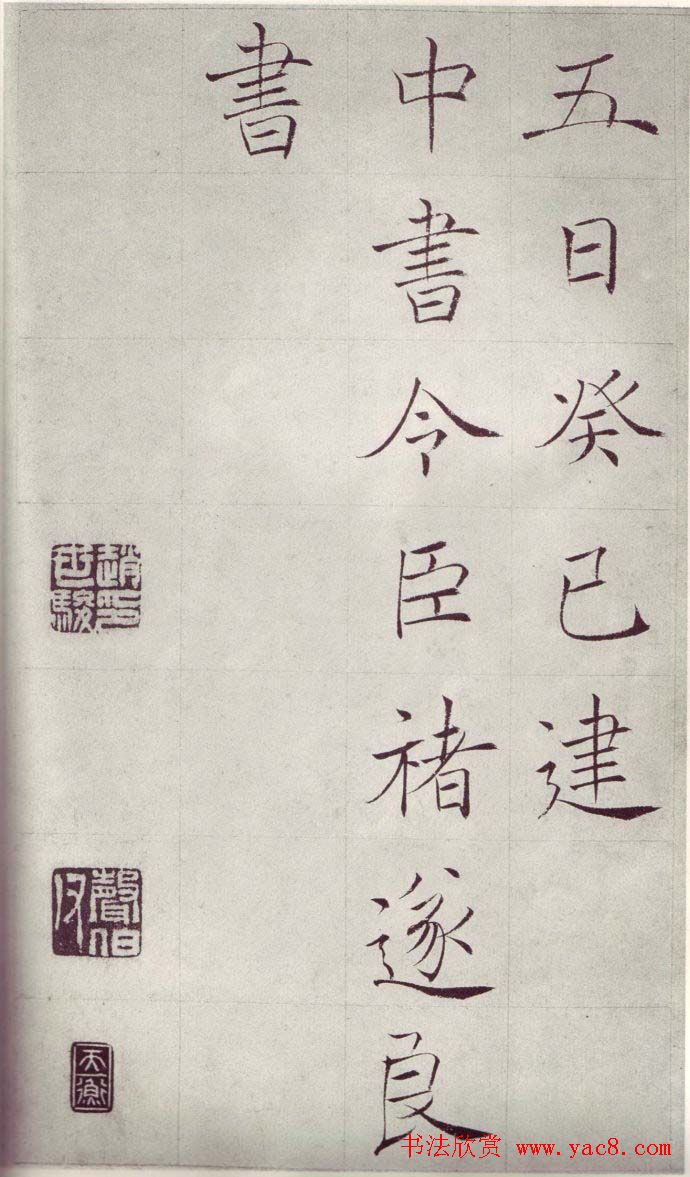 五日癸已建
中書令臣褚遂良
書
趙印世駿
聲伯
天衡
书法欣赏 www.yac8.com